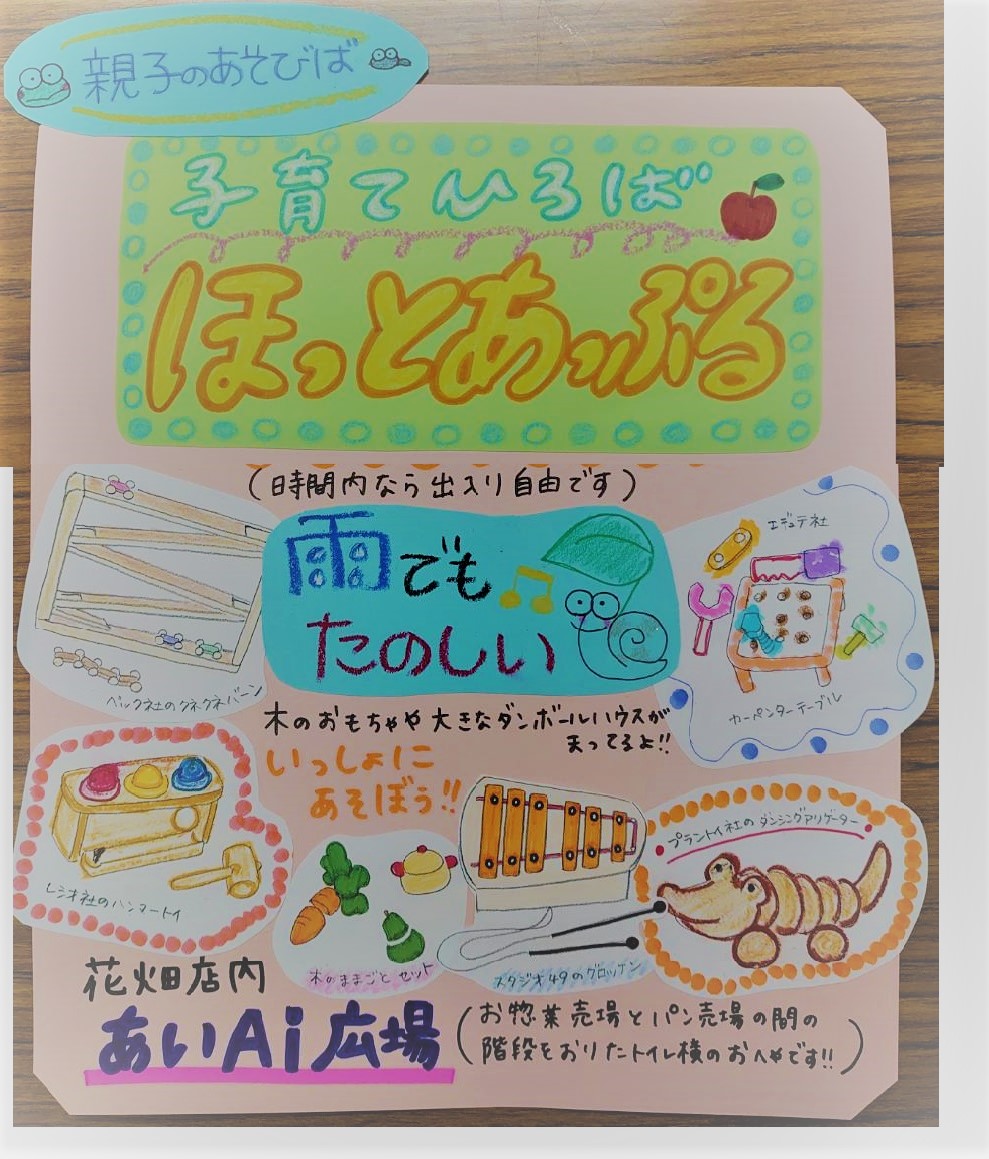 親子のあそびば
子育てひろば
ほっとあっぷる
(時間内なら出入り自由です)
雨でも
たのしい
エジュテ社
カーペンターテーブル
ベック社のクネクネバーン
木のおもちゃや大きなダンボールハウスが
まってるよ!!
いっしょに
あそぼう!!
プラントイ社のダンシングアリゲーター
レシオ社のハンマートイ
木のままごとセット
スタジオ49のグロッケン
花畑店内
あいAi広場
(お惣菜売場とパン売場の間の
階段をおりたトイレ横のおへやです!!)